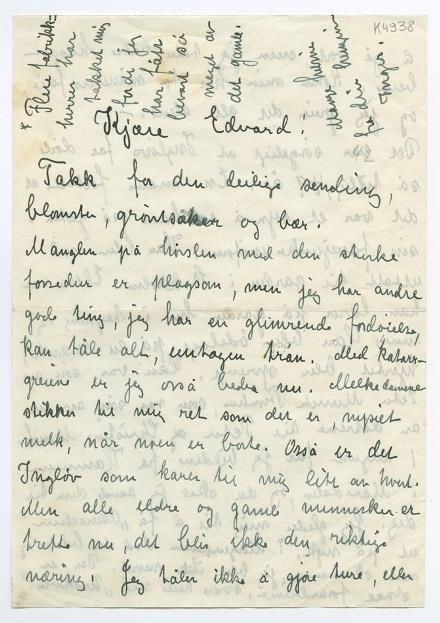 K4938
* Flere fabrikk-
herrer har
takket mig
fordi jeg
har fått
bevart så
meget av
det gamle.
Mange
hilsner
fra din
Inger.
42
Kjære Edvard!
Takk for den deilige sending,
blomster, grøntsaker og bær.
Manglen på hørslen med den sterke
forsedur er plagsom, men jeg har andre
gode ting, jeg har en glimrende fordøielse,
kan tåle alt, untagen tran. Med katarr-
greiene er jeg osså bedre nu. Melkedamene
stikker til mig ret som det er, nysiet
melk, når noen er borte. Osså er det
Ingløv som karer til mig litt av hvert.
Men alle eldre og gamle mennesker er
trette nu, det blir ikke den riktige
næring! Jeg tåler ikke å gjøre ture, eller